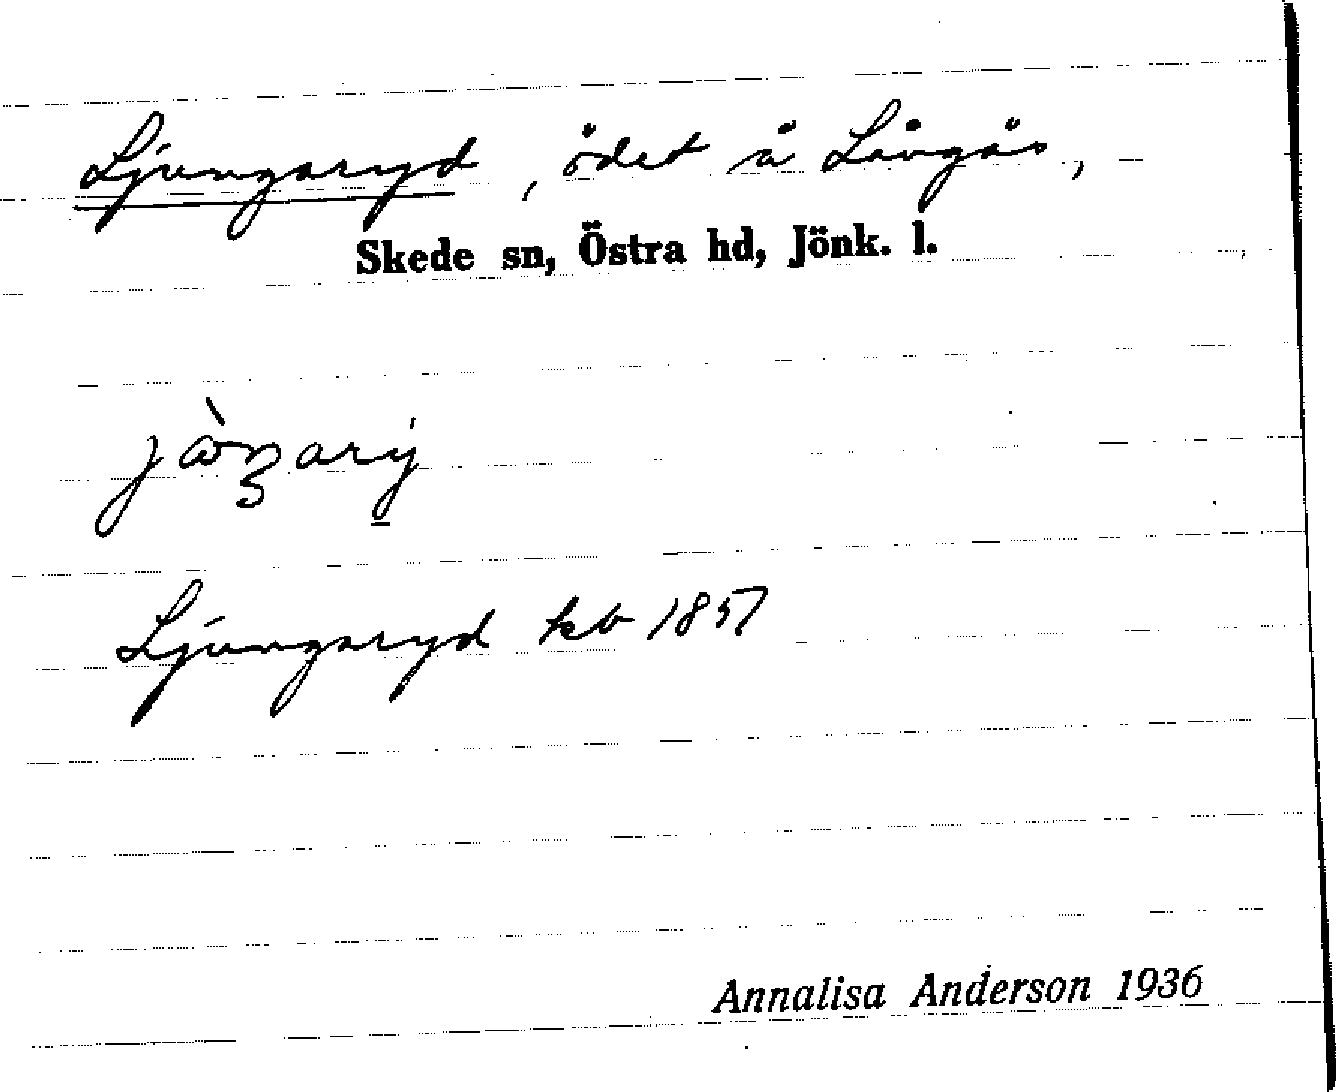 Ljungaryd, ödet å Långås,
Skede sn, Östra hd, Jönk. l.
Ljungaryd kb 1857
Annalisa Anderson 1936